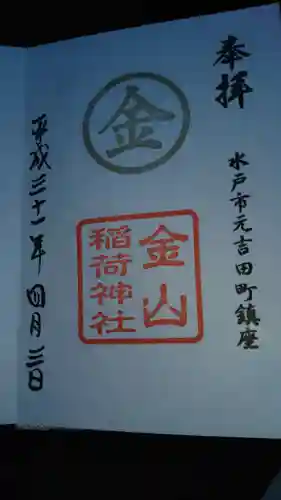 奉拝
水戸市元吉田町鎮座
金
金山
稲荷神社
平成三十一年四月三日